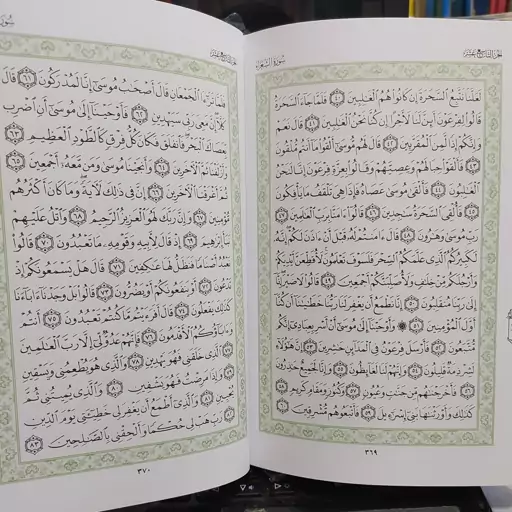 الجزء التاسع عشر
سورة الشعراء
لَعَلَّنَا نَتَّبِعُ السَّحَرَةَ إِن كَانُوا۟ هُمُ الْغَٰلِبِينَ ٤٠ فَلَمَّا جَآءَ السَّحَرَةُ
قَالُوا۟ لِفِرْعَوْنَ أَئِنَّ لَنَا لَأَجْرًا إِن كُنَّا نَحْنُ الْغَٰلِبِينَ ٤١ قَالَ نَعَمْ
وَإِنَّكُمْ إِذًا لَّمِنَ الْمُقَرَّبِينَ ٤٢ قَالَ لَهُم مُّوسَىٰٓ أَلْقُوا۟ مَآ أَنتُم مُّلْقُونَ
٤٣ فَأَلْقَوْا۟ حِبَالَهُمْ وَعِصِيَّهُمْ وَقَالُوا۟ بِعِزَّةِ فِرْعَوْنَ إِنَّا لَنَحْنُ
الْغَٰلِبُونَ ٤٤ فَأَلْقَىٰ مُوسَىٰ عَصَاهُ فَإِذَا هِىَ تَلْقَفُ مَا يَأْفِكُونَ
٤٥ فَأُلْقِىَ السَّحَرَةُ سَٰجِدِينَ ٤٦ قَالُوٓا۟ ءَامَنَّا بِرَبِّ الْعَٰلَمِينَ ٤٧
رَبِّ مُوسَىٰ وَهَٰرُونَ ٤٨ قَالَ ءَامَنتُمْ لَهُۥ قَبْلَ أَنْ ءَاذَنَ لَكُمْ إِنَّهُۥ
لَكَبِيرُكُمُ الَّذِى عَلَّمَكُمُ السِّحْرَ فَلَسَوْفَ تَعْلَمُونَ لَأُقَطِّعَنَّ أَيْدِيَكُمْ
وَأَرْجُلَكُم مِّنْ خِلَٰفٍ وَلَأُصَلِّبَنَّكُمْ أَجْمَعِينَ ٤٩ قَالُوا۟ لَا ضَيْرَ إِنَّآ
إِلَىٰ رَبِّنَا مُنقَلِبُونَ ٥٠ إِنَّا نَطْمَعُ أَن يَغْفِرَ لَنَا رَبُّنَا خَطَٰيَٰنَآ أَن كُنَّآ
أَوَّلَ الْمُؤْمِنِينَ ٥١ ۞ وَأَوْحَيْنَآ إِلَىٰ مُوسَىٰٓ أَنْ أَسْرِ بِعِبَادِىٓ إِنَّكُم
مُّتَّبَعُونَ ٥٢ فَأَرْسَلَ فِرْعَوْنُ فِى الْمَدَآئِنِ حَٰشِرِينَ ٥٣ إِنَّ هَٰٓؤُلَآءِ
لَشِرْذِمَةٌ قَلِيلُونَ ٥٤ وَإِنَّهُمْ لَنَا لَغَآئِظُونَ ٥٥ وَإِنَّا لَجَمِيعٌ حَٰذِرُونَ
٥٦ فَأَخْرَجْنَٰهُم مِّن جَنَّٰتٍ وَعُيُونٍ ٥٧ وَكُنُوزٍ وَمَقَامٍ كَرِيمٍ ٥٨
كَذَٰلِكَ وَأَوْرَثْنَٰهَا بَنِىٓ إِسْرَٰٓءِيلَ ٥٩ فَأَتْبَعُوهُم مُّشْرِقِينَ ٦٠
٣٦٩
الجزء التاسع عشر
فَلَمَّا تَرَٰٓءَا الْجَمْعَانِ قَالَ أَصْحَٰبُ مُوسَىٰٓ إِنَّا لَمُدْرَكُونَ ٦١ قَالَ
كَلَّآ إِنَّ مَعِىَ رَبِّى سَيَهْدِينِ ٦٢ فَأَوْحَيْنَآ إِلَىٰ مُوسَىٰٓ أَنِ اضْرِب
بِّعَصَاكَ الْبَحْرَ فَانفَلَقَ فَكَانَ كُلُّ فِرْقٍ كَالطَّوْدِ الْعَظِيمِ ٦٣
وَأَزْلَفْنَا ثَمَّ الْءَاخَرِينَ ٦٤ وَأَنجَيْنَا مُوسَىٰ وَمَن مَّعَهُۥٓ أَجْمَعِينَ ٦٥
ثُمَّ أَغْرَقْنَا الْءَاخَرِينَ ٦٦ إِنَّ فِى ذَٰلِكَ لَءَايَةً وَمَا كَانَ أَكْثَرُهُم
مُّؤْمِنِينَ ٦٧ وَإِنَّ رَبَّكَ لَهُوَ الْعَزِيزُ الرَّحِيمُ ٦٨ وَاتْلُ عَلَيْهِمْ
نَبَأَ إِبْرَٰهِيمَ ٦٩ إِذْ قَالَ لِأَبِيهِ وَقَوْمِهِۦ مَا تَعْبُدُونَ ٧٠ قَالُوا۟
نَعْبُدُ أَصْنَامًا فَنَظَلُّ لَهَا عَٰكِفِينَ ٧١ قَالَ هَلْ يَسْمَعُونَكُمْ إِذْ
تَدْعُونَ ٧٢ أَوْ يَنفَعُونَكُمْ أَوْ يَضُرُّونَ ٧٣ قَالُوا۟ بَلْ وَجَدْنَآ ءَابَآءَنَا
كَذَٰلِكَ يَفْعَلُونَ ٧٤ قَالَ أَفَرَءَيْتُم مَّا كُنتُمْ تَعْبُدُونَ ٧٥ أَنتُمْ
وَءَابَآؤُكُمُ الْأَقْدَمُونَ ٧٦ فَإِنَّهُمْ عَدُوٌّ لِّىٓ إِلَّا رَبَّ الْعَٰلَمِينَ
٧٧ الَّذِى خَلَقَنِى فَهُوَ يَهْدِينِ ٧٨ وَالَّذِى هُوَ يُطْعِمُنِى وَيَسْقِينِ
٧٩ وَإِذَا مَرِضْتُ فَهُوَ يَشْفِينِ ٨٠ وَالَّذِى يُمِيتُنِى ثُمَّ
يُحْيِينِ ٨١ وَالَّذِىٓ أَطْمَعُ أَن يَغْفِرَ لِى خَطِيٓـَٔتِى يَوْمَ الدِّينِ
٨٢ رَبِّ هَبْ لِى حُكْمًا وَأَلْحِقْنِى بِالصَّٰلِحِينَ ٨٣
٣٧٠